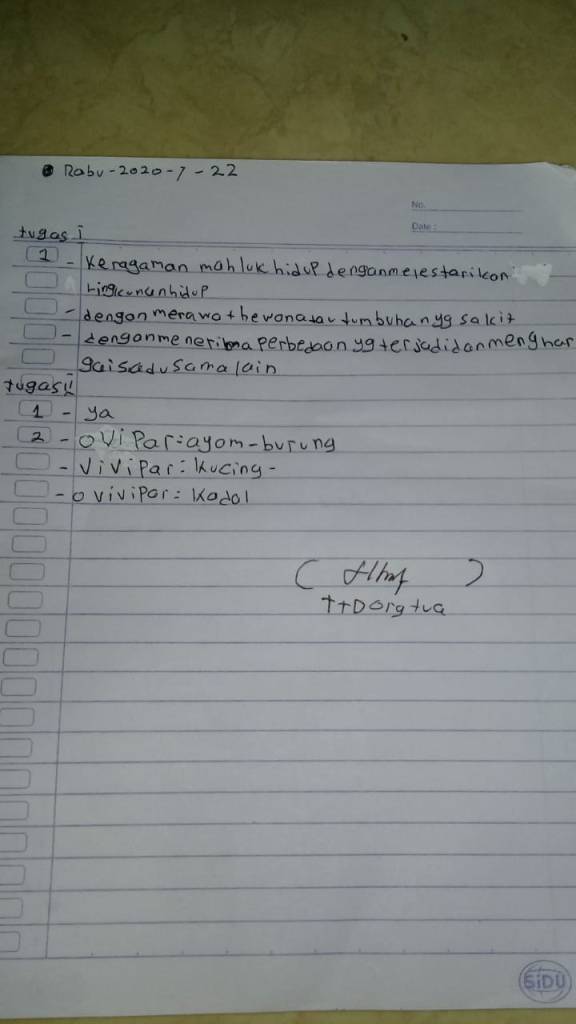 Rabu-2020-7-22
No.
Date:
tugas i
1 - Keragaman mahluk hidup dengan melestarikan
lingkunan hidup
- dengan merawat hewan atau tumbuhan yg sakit
- dengan menerima perbedaan yg terjadi dan menghar
gai sadu sama lain
tugas ii
1 - ya
2 - oVi Par: ayam - burung
- ViVi Par: kucing -
- o vivipar: kadal
( )
TTD org tua
SiDU